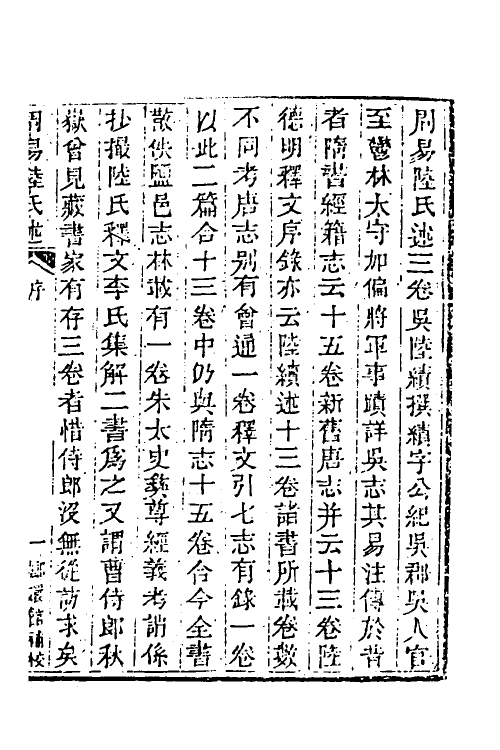 周易陸氏述三卷吳陸績撰績字公紀吳郡吳人官
至鬱林太守加偏將軍事蹟詳吳志其易注傳於昔
者隋書經籍志云十五卷新舊唐志并云十三卷陸
德明釋文序錄亦云陸績述十三卷諸書所載卷數
不同考唐志別有會通一卷釋文引七志有錄一卷
以此二篇合十三卷中仍與隋志十五卷合今全書
散佚鹽邑志林載有一卷朱太史彝尊經義考謂係
抄撮陸氏釋文李氏集解二書為之又謂曹侍郎秋
嶽曾見藏書家有存三卷者惜侍郎沒無從訪求矣
周易陸氏述 序 一 嫏嬛館補校